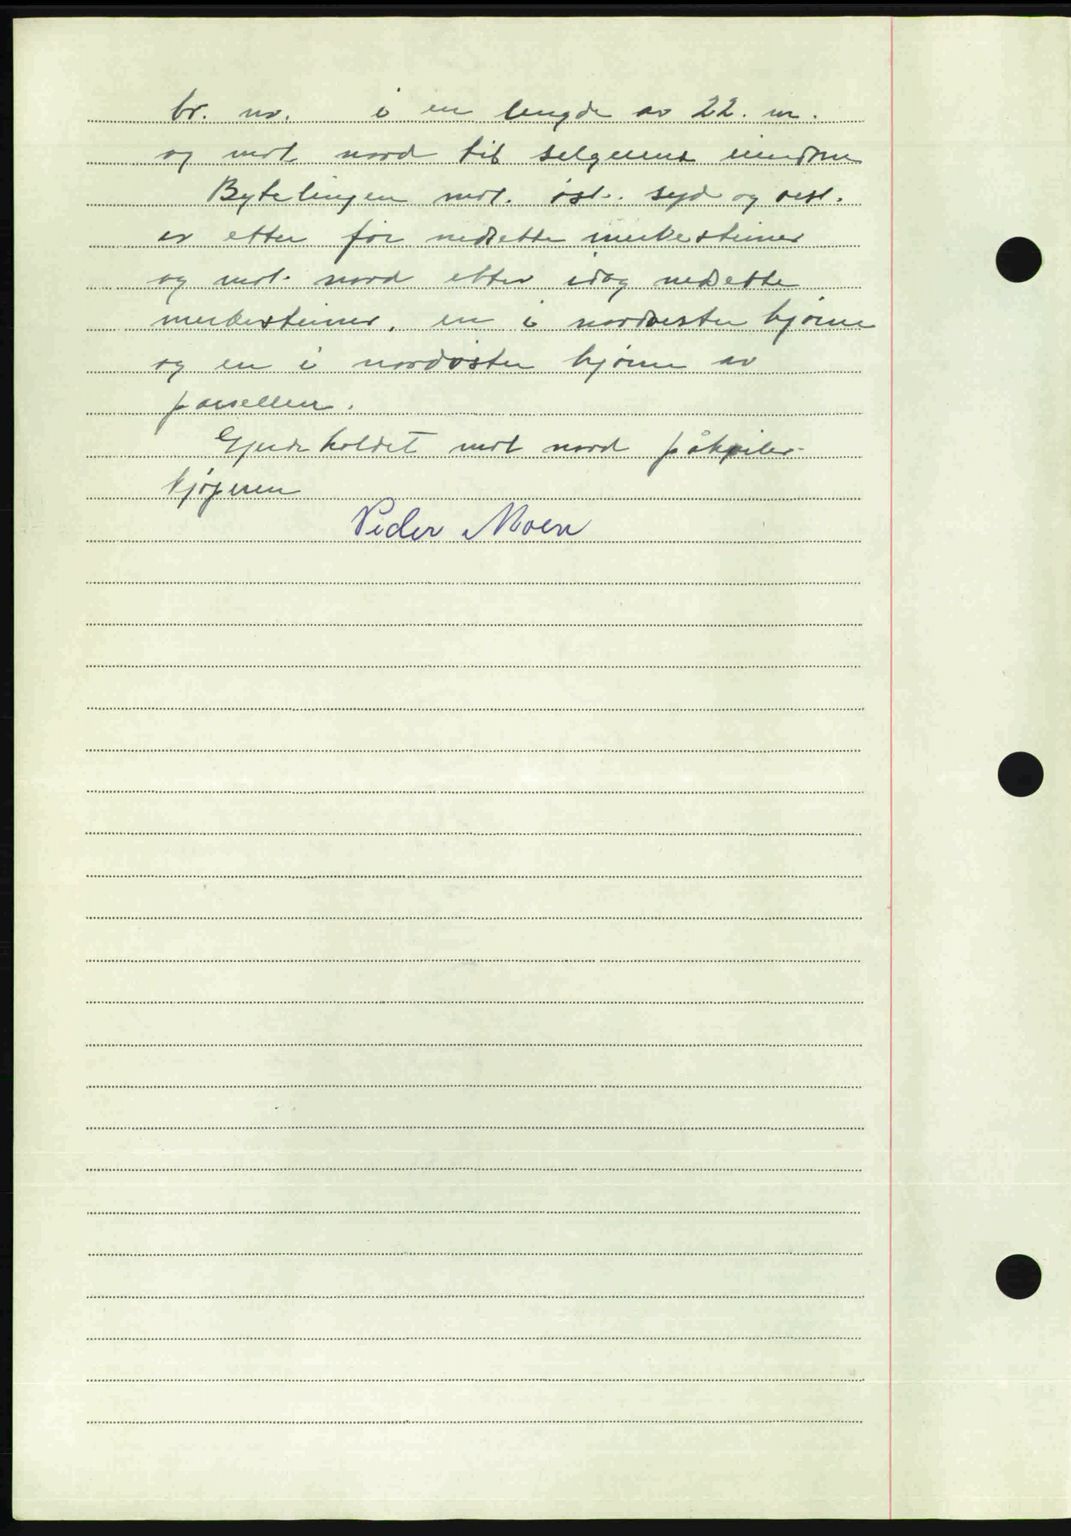 br. no. i en lengde av 22. m.
og mot nord til selgerens eiendom
Bytelingen mot. öst. syd og vest.
er etter för nedsette merkesteiner
og mot. nord etter idag nedsette
merkesteiner, en i nordvestre hjörne
og en i nordöstre hjörne av
parsellen.
Gjerdeholdet mot nord påhviler
kjöperen
Peder Moen